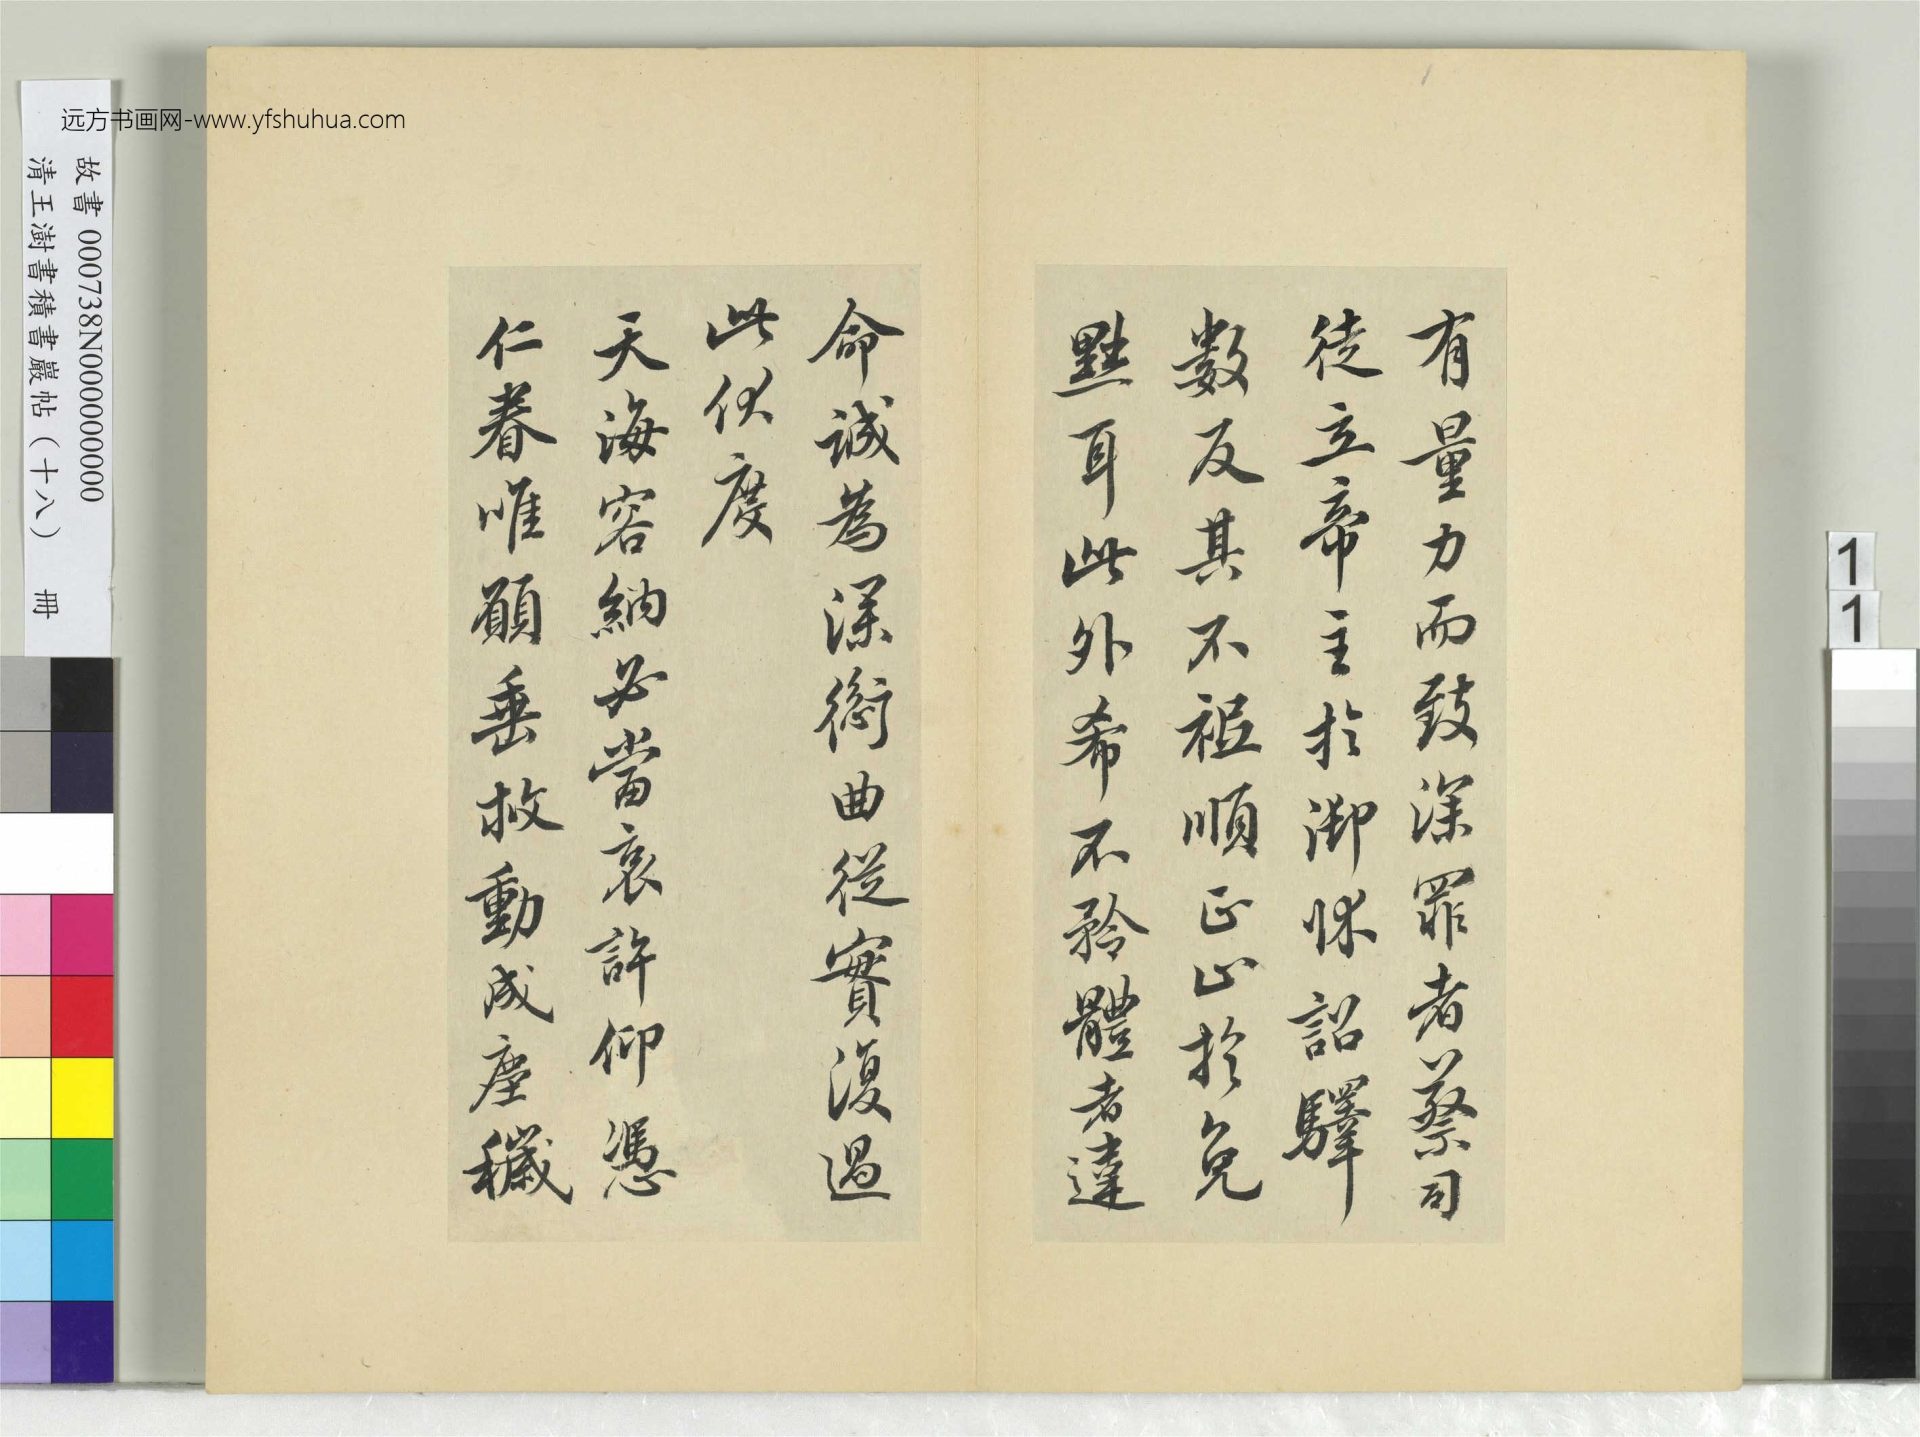 远方书画网-www.yfshuhua.com
故書 000738N000000000
清王澍書積書巖帖(十八) 冊
有量力而致深罪者蔡司
徒立帝主於御床詔驛
數反其不祗順正止於免
黜耳此外希不矜體者違
命誠為深銜曲從實復過
此伏度
天海容納必當哀許仰憑
仁眷唯願垂救動成塵穢
1
1